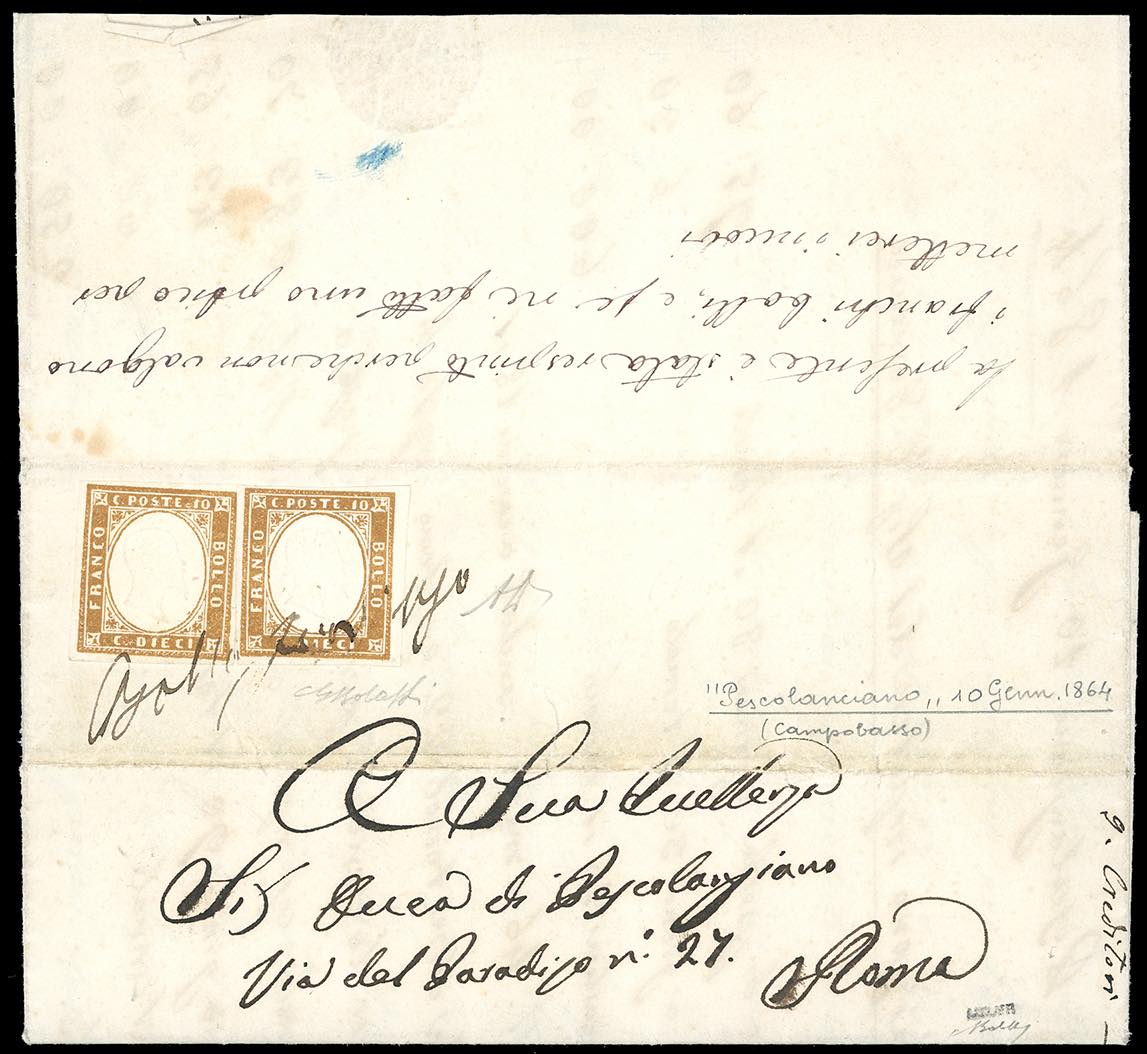 la presente è stata respinta perche non valgono
i franchi bolli, e se ne fatti uno
metterci i nuovi
C. POSTE 10
FRANCO
BOLLO
C. DIECI
C. POSTE 10
FRANCO
BOLLO
DIECI
"Pescolanciano„ 10 Genn. 1864
(Campobasso)
A Sua Eccellenza
Duca di Pescolangiano
Via del Paradiso n.° 27.
Roma
g. Creditori